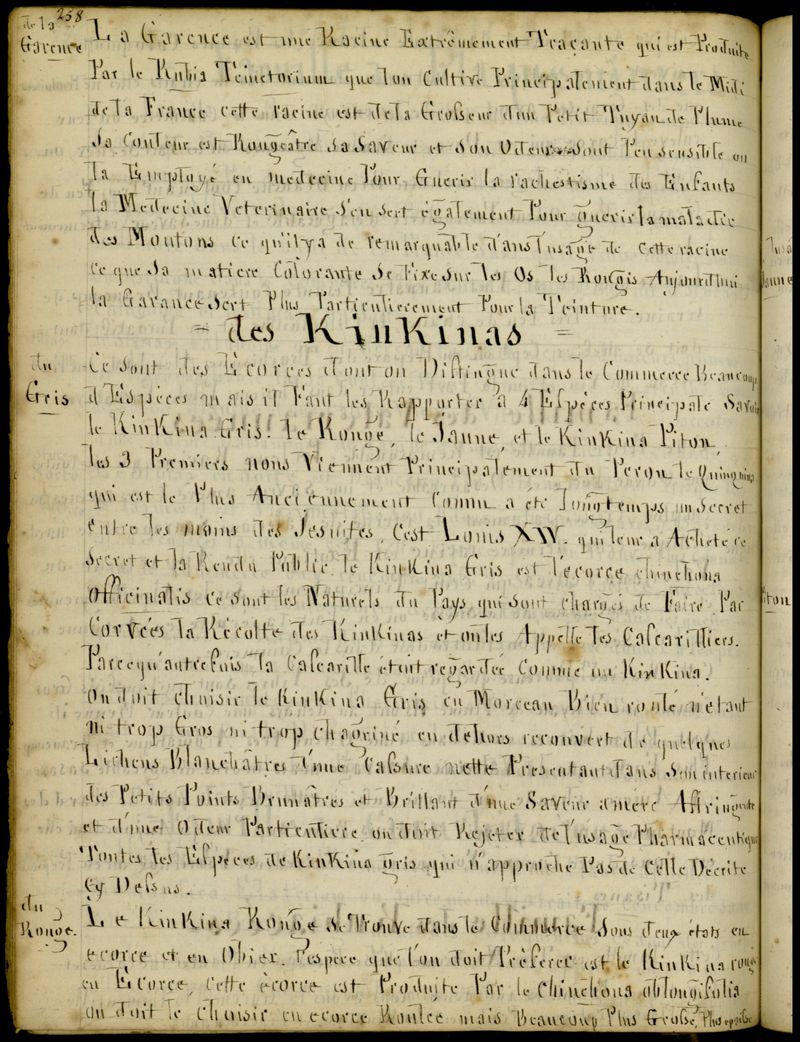 258
de la
Garence
La Garence est une Racine Extrêmement Traçante qui est Produite
Par le Rubia Teinctorium que l'on Cultive Principalement dans le Midi
de la France cette racine est de la Grosseur d'un Petit Tuyau de Plume
Sa Couleur est Rougeâtre Sa Saveur et Son Odeur Sont Peu Sensible on
la Employé en medecine Pour Guerir la rachestisme des Enfants
la Medecine Veterinaire S'en Sert également Pour guerir la maladie
des Moutons ce qu'il y a de remarquable dans l'usage de cette racine
ce que Sa matiere Colorante Se Fixe Sur les Os les Rougis Aujourdhui
la Garance Sert Plus Particulierement Pour la Teinture.
= des KinKinas =
du
Gris
Ce sont des Ecorces dont on Distingue dans le Commerce Beaucoup
d'Espèces mais il Faut les Rapporter à 4 Espèces Principale Savoir
le KinKina Gris. le Rouge, le Jaune, et le KinKina Piton,
les 3 Premiers nous Viennent Principalement du Perou le Quinquina
qui est le Plus Anciennement Connu a été Longtemps un Secret
entre les mains des Jesuites, C'est Louis XIV. qui leur a Acheté ce
Secret et la Rendu Public. le KinKina Gris est l'écorce chinchona
Officinalis ce sont les Naturels du Pays qui sont chargés de Faire Par
Corvées la Récolte des KinKinas et on les Appelle les Cascarilliers.
Parcequ'autrefois la Cascarille étoit regardée Comme un KinKina.
On doit choisir le KinKina Gris en Morceau Bien roulé n'étant
ni trop Gros ni trop chagriné en dehors recouvert de quelques
Lichens Blanchâtres d'une Cassure nette Presentant dans Son interieur
des Petits Points Brunâtres et Brillant d'une Saveur amere Astringente
et d'une Odeur Particuliere on doit Rejeter de l'usage Pharmaceutique
Toutes les Espèces de KinKina gris qui n'approche Pas de Celle Décrite
Cy Dessus.
du
Rouge.
Le KinKina Rouge Se Trouve dans le Commerce Sous deux états en
ecorce et en Obier. l'espèce que l'on doit Préferer est le KinKina rouge
en Ecorce, Cette écorce est Produite Par le chinchona oblongifolia
on doit le choisir en ecorce Roulée mais Beaucoup Plus Grosse, Plus epaisse